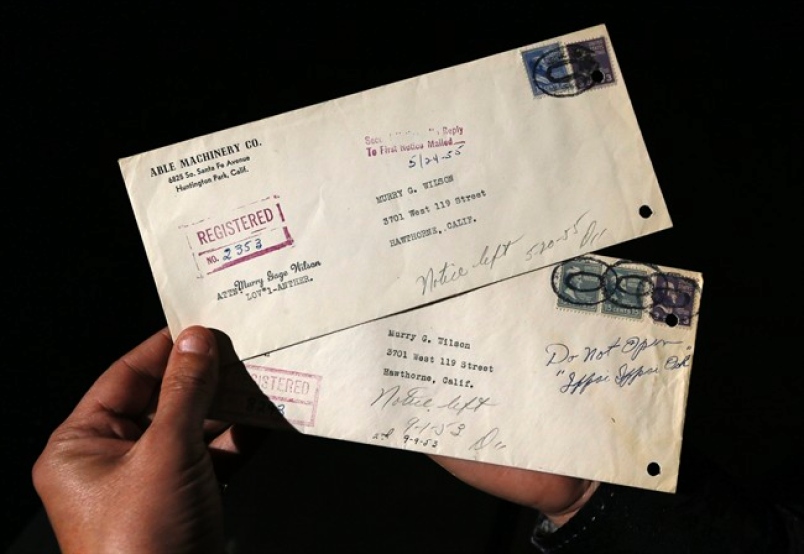 ABLE MACHINERY CO.
6825 So. Santa Fe Avenue
Huntington Park, Calif.
Reply
To First Notice Mailed
5/24-55
MURRY G. WILSON
3701 West 119 Street
HAWTHORNE, CALIF.
REGISTERED
NO. 2353
Murry Gage Wilson
ATTN
LOV*1-ANTHER.
Notice left 5-20-55
Murry G. Wilson
3701 West 119 Street
Hawthorne, Calif.
Do Not Open
STERED
Notice left
9-1-53
9-9-53